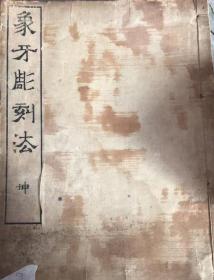 象牙彫刻法 坤